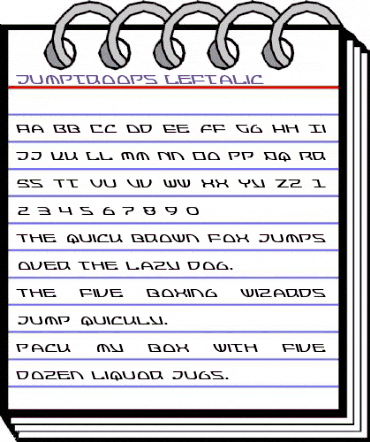 JUMPTROOPS LEFTALIC
AA BB CC DD EE FF GG HH II
JJ KK LL MM NN OO PP QQ RR
SS TT UU VV WW XX YY ZZ 1
2 3 4 5 6 7 8 9 0
THE QUICK BROWN FOX JUMPS
OVER THE LAZY DOG.
THE FIVE BOXING WIZARDS
JUMP QUICKLY.
PACK MY BOX WITH FIVE
DOZEN LIQUOR JUGS.